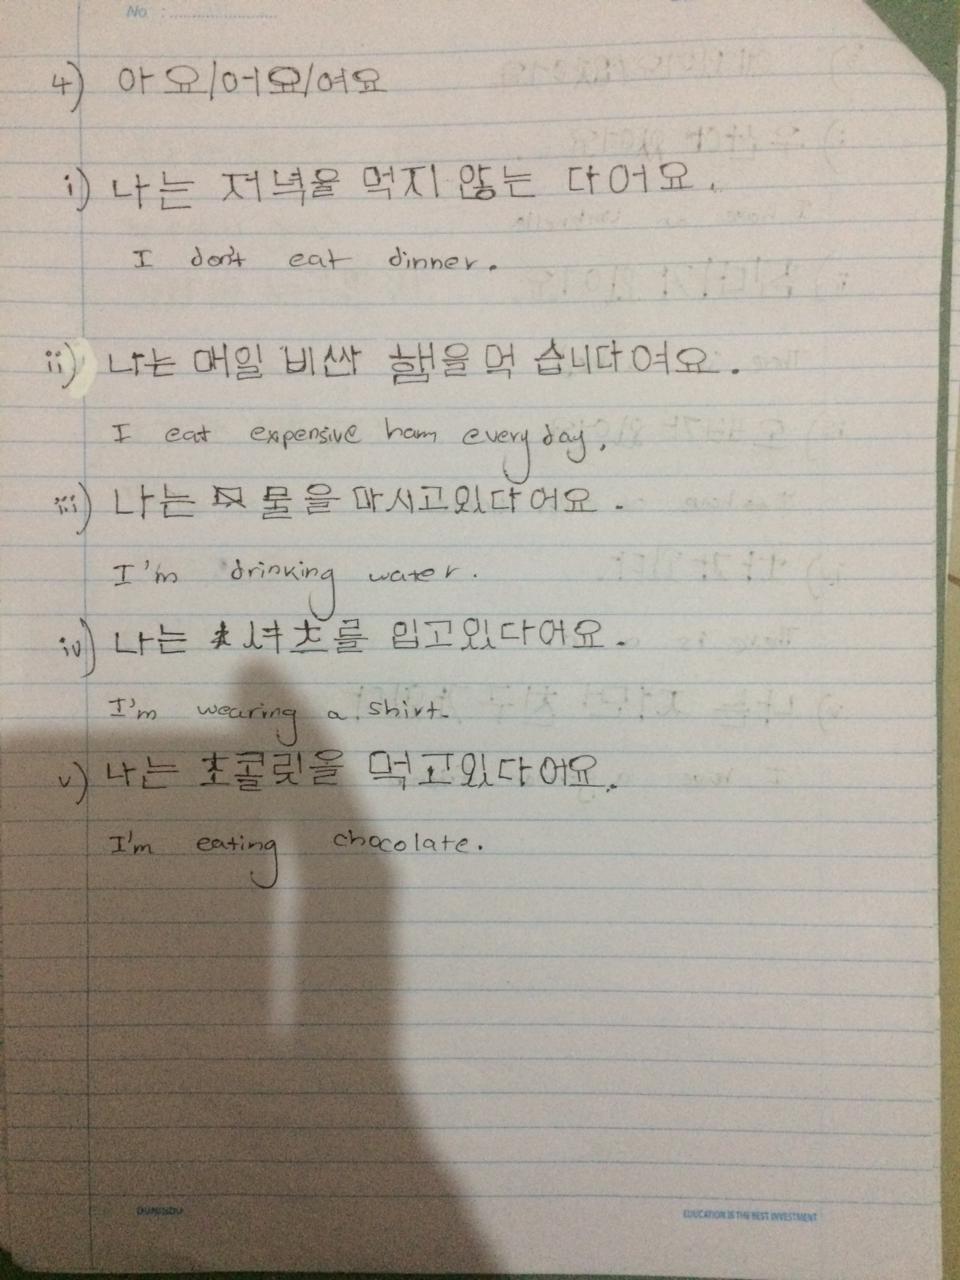 No :
4) 아요/어요/여요
i) 나는 저녁을 먹지 않는 다어요.
I don't eat dinner.
ii) 나는 매일 비싼 햄을 먹 습니다여요.
I eat expensive ham every day.
iii) 나는 물을 마시고있다어요.
I'm drinking water.
iv) 나는 셔츠를 입고있다어요.
I'm wearing a shirt.
v) 나는 초콜릿을 먹고있다어요.
I'm eating chocolate.
EDUCATION IS THE BEST INVESTMENT